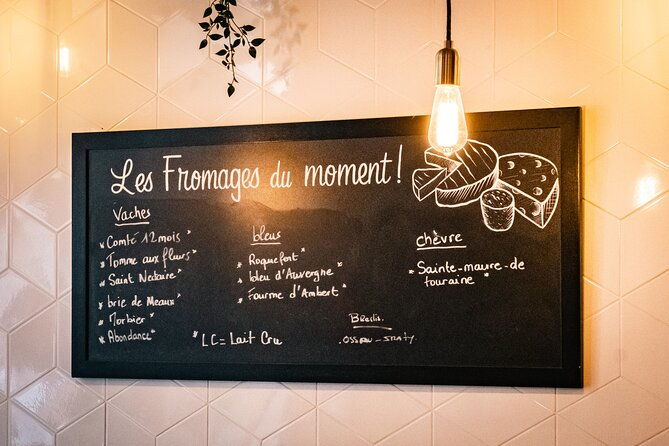 Les Fromages du moment!
Vaches
* Comté 12 mois *
* Tomme aux fleurs *
* Saint Nectaire *
* brie de Meaux *
* Morbier *
* Abondance *
bleus
* Roquefort *
* bleu d'Auvergne *
* Fourme d'Ambert *
chèvre
* Sainte-maure-de
touraine *
* LC = Lait Cru
Brebis